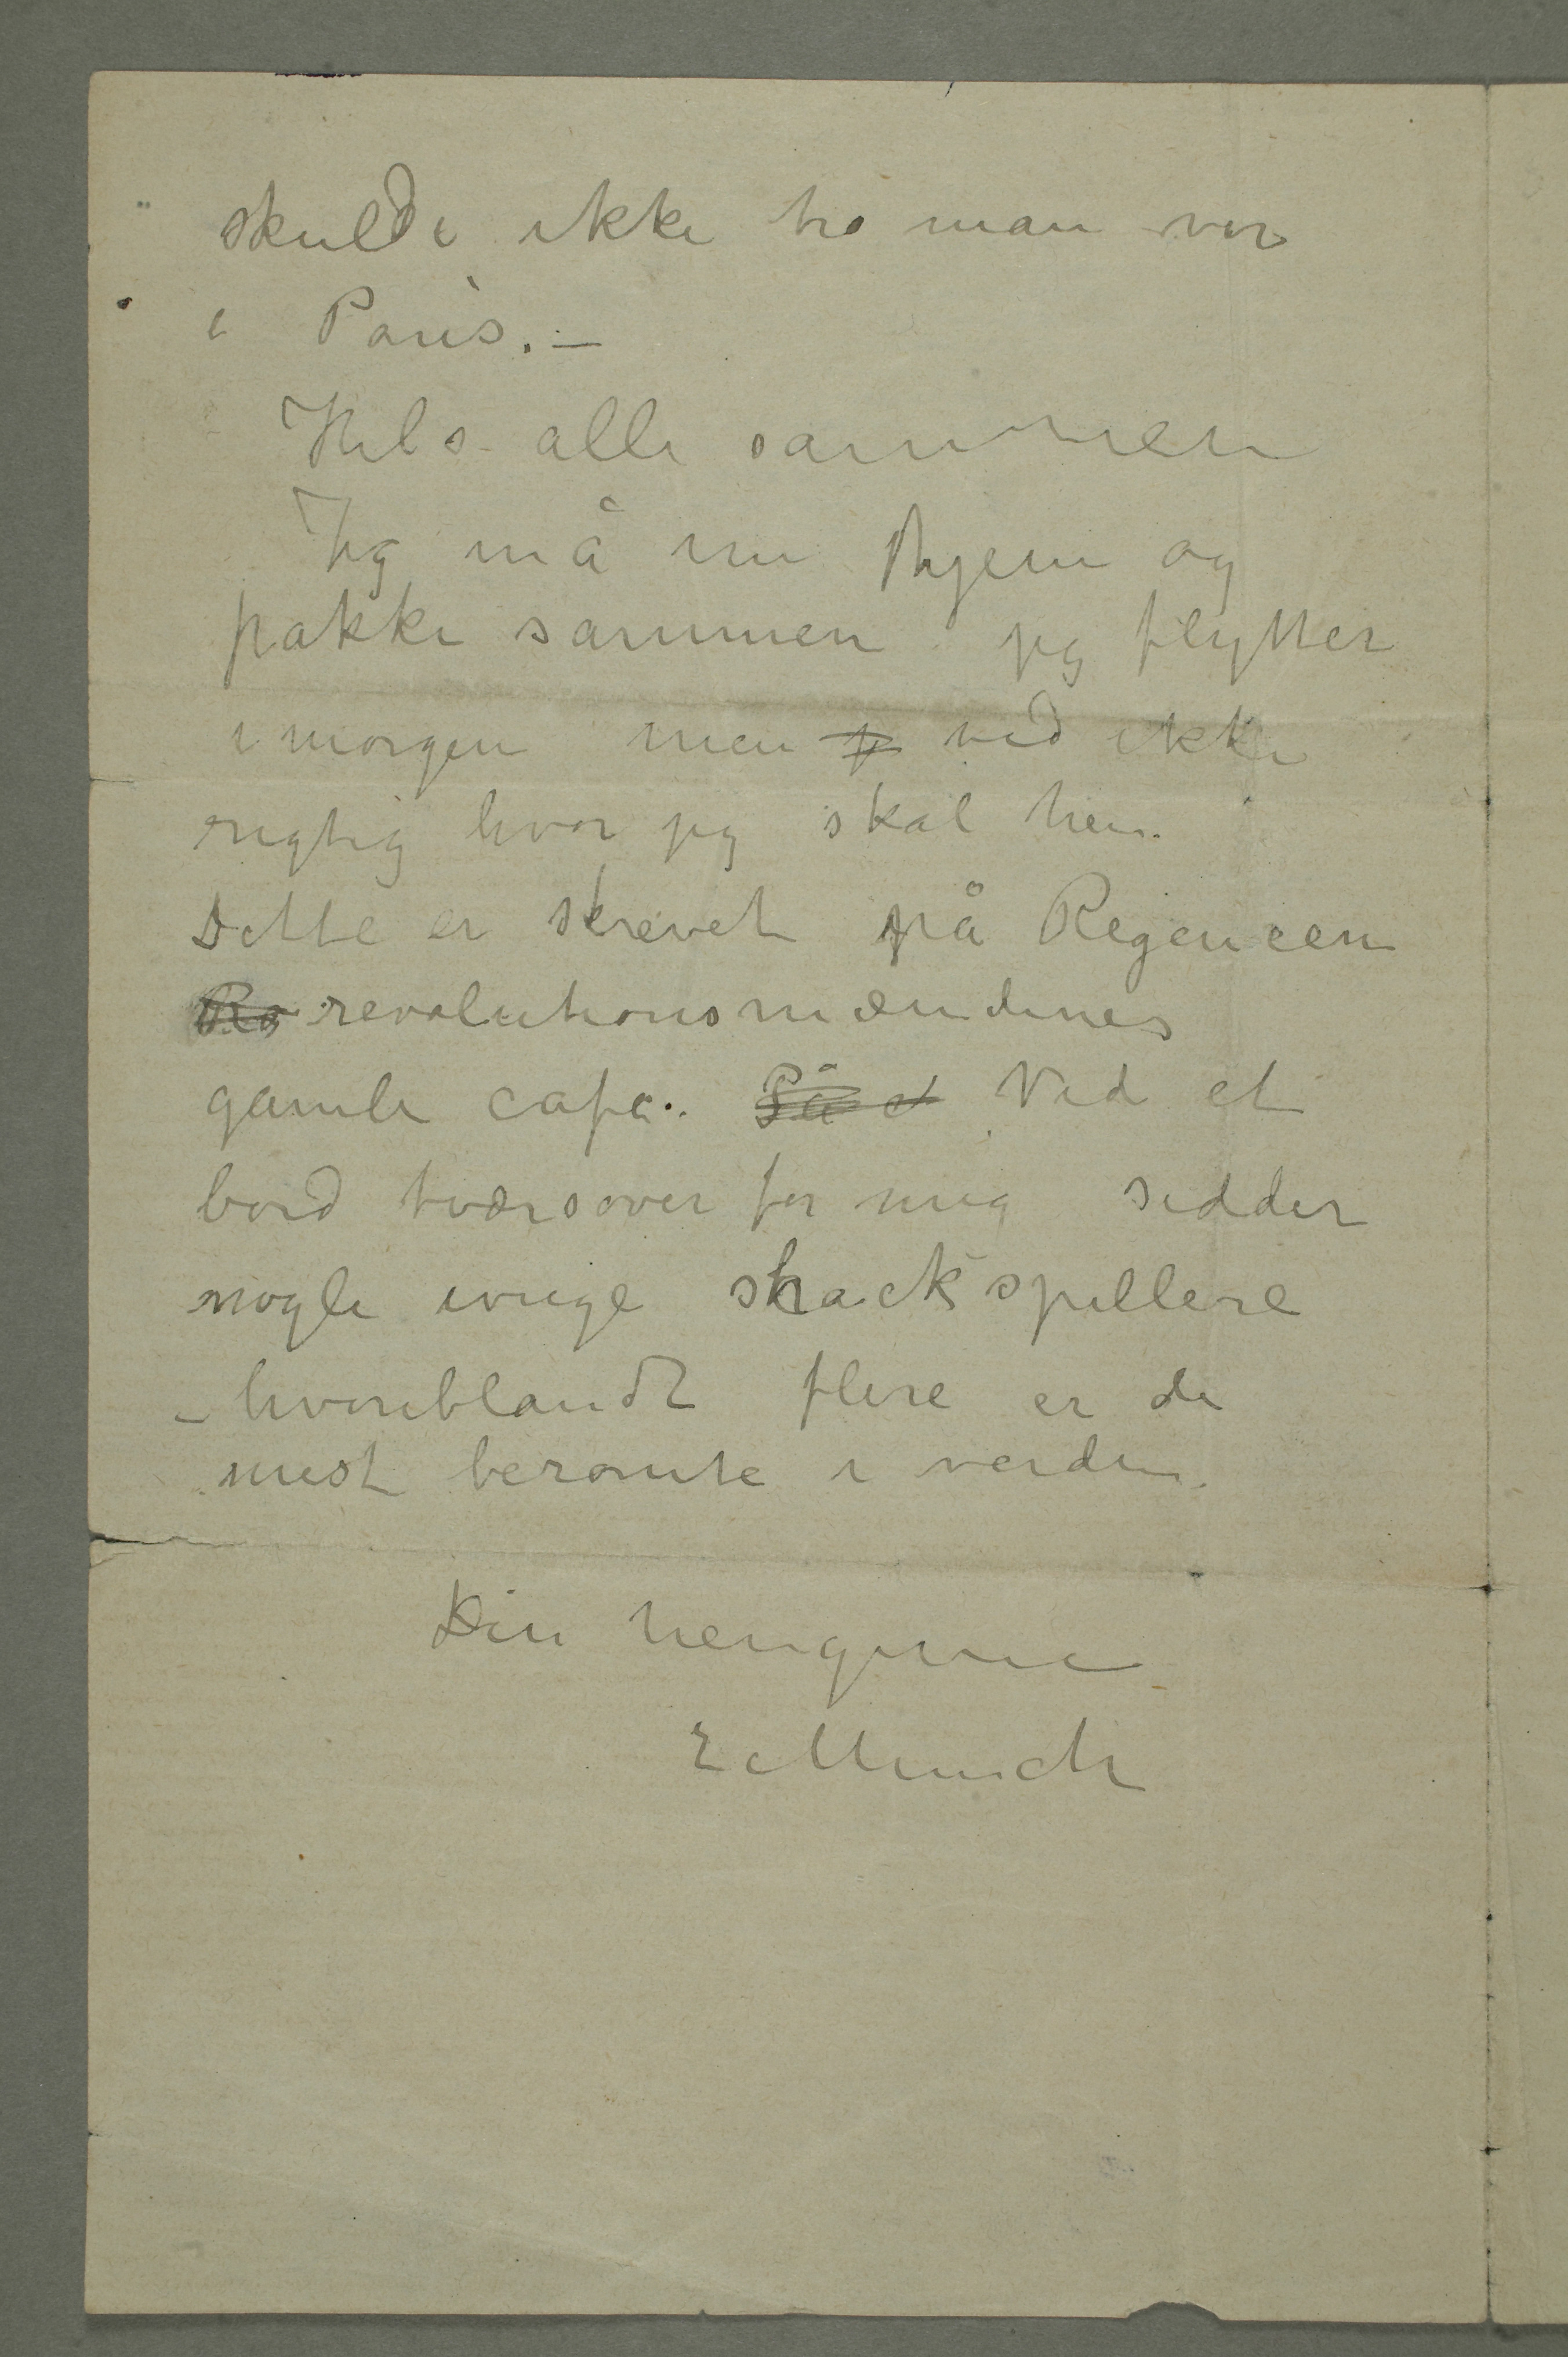 skulde ikke tro man var
i Paris. –
Hils alle sammen
Jeg må nu hjem og
pakke sammen jeg flytter
imorgen men ved ikke
rigtig hvor jeg skal hen.
Dette er skrevet på Regencen
revolutionsmændenes
gamle cafe. På et Ved et
bord tværsover for mig sidder
nogle ivrige shackspillere
– hvoriblandt flere er de
mest beromte i verden.
Din hengivne
E Munch